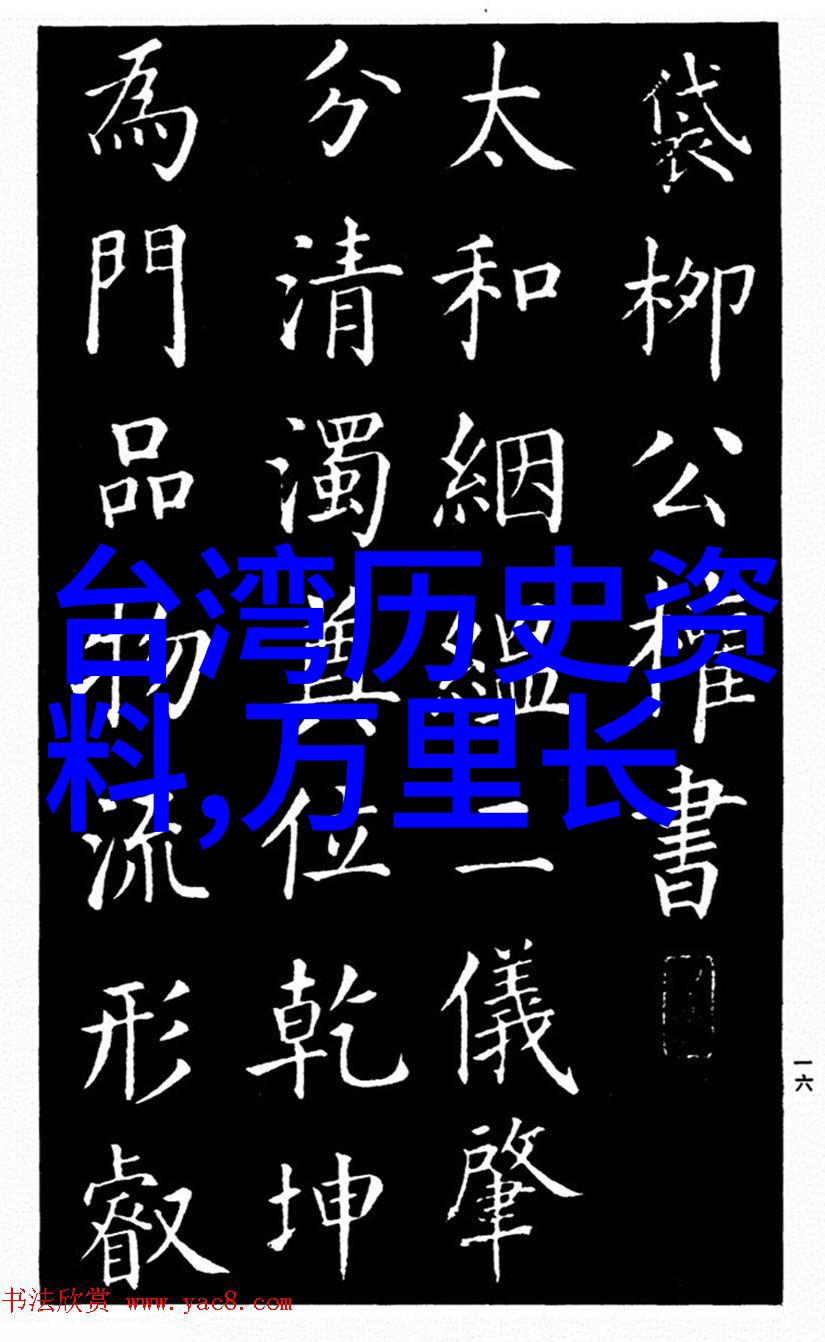 袋柳公權書
太和絪縕二儀肇
分清濁奠位乾坤
為門品物流形叡
台湾历史资
料,万里长
一六
书法欣赏 www.yac8.com